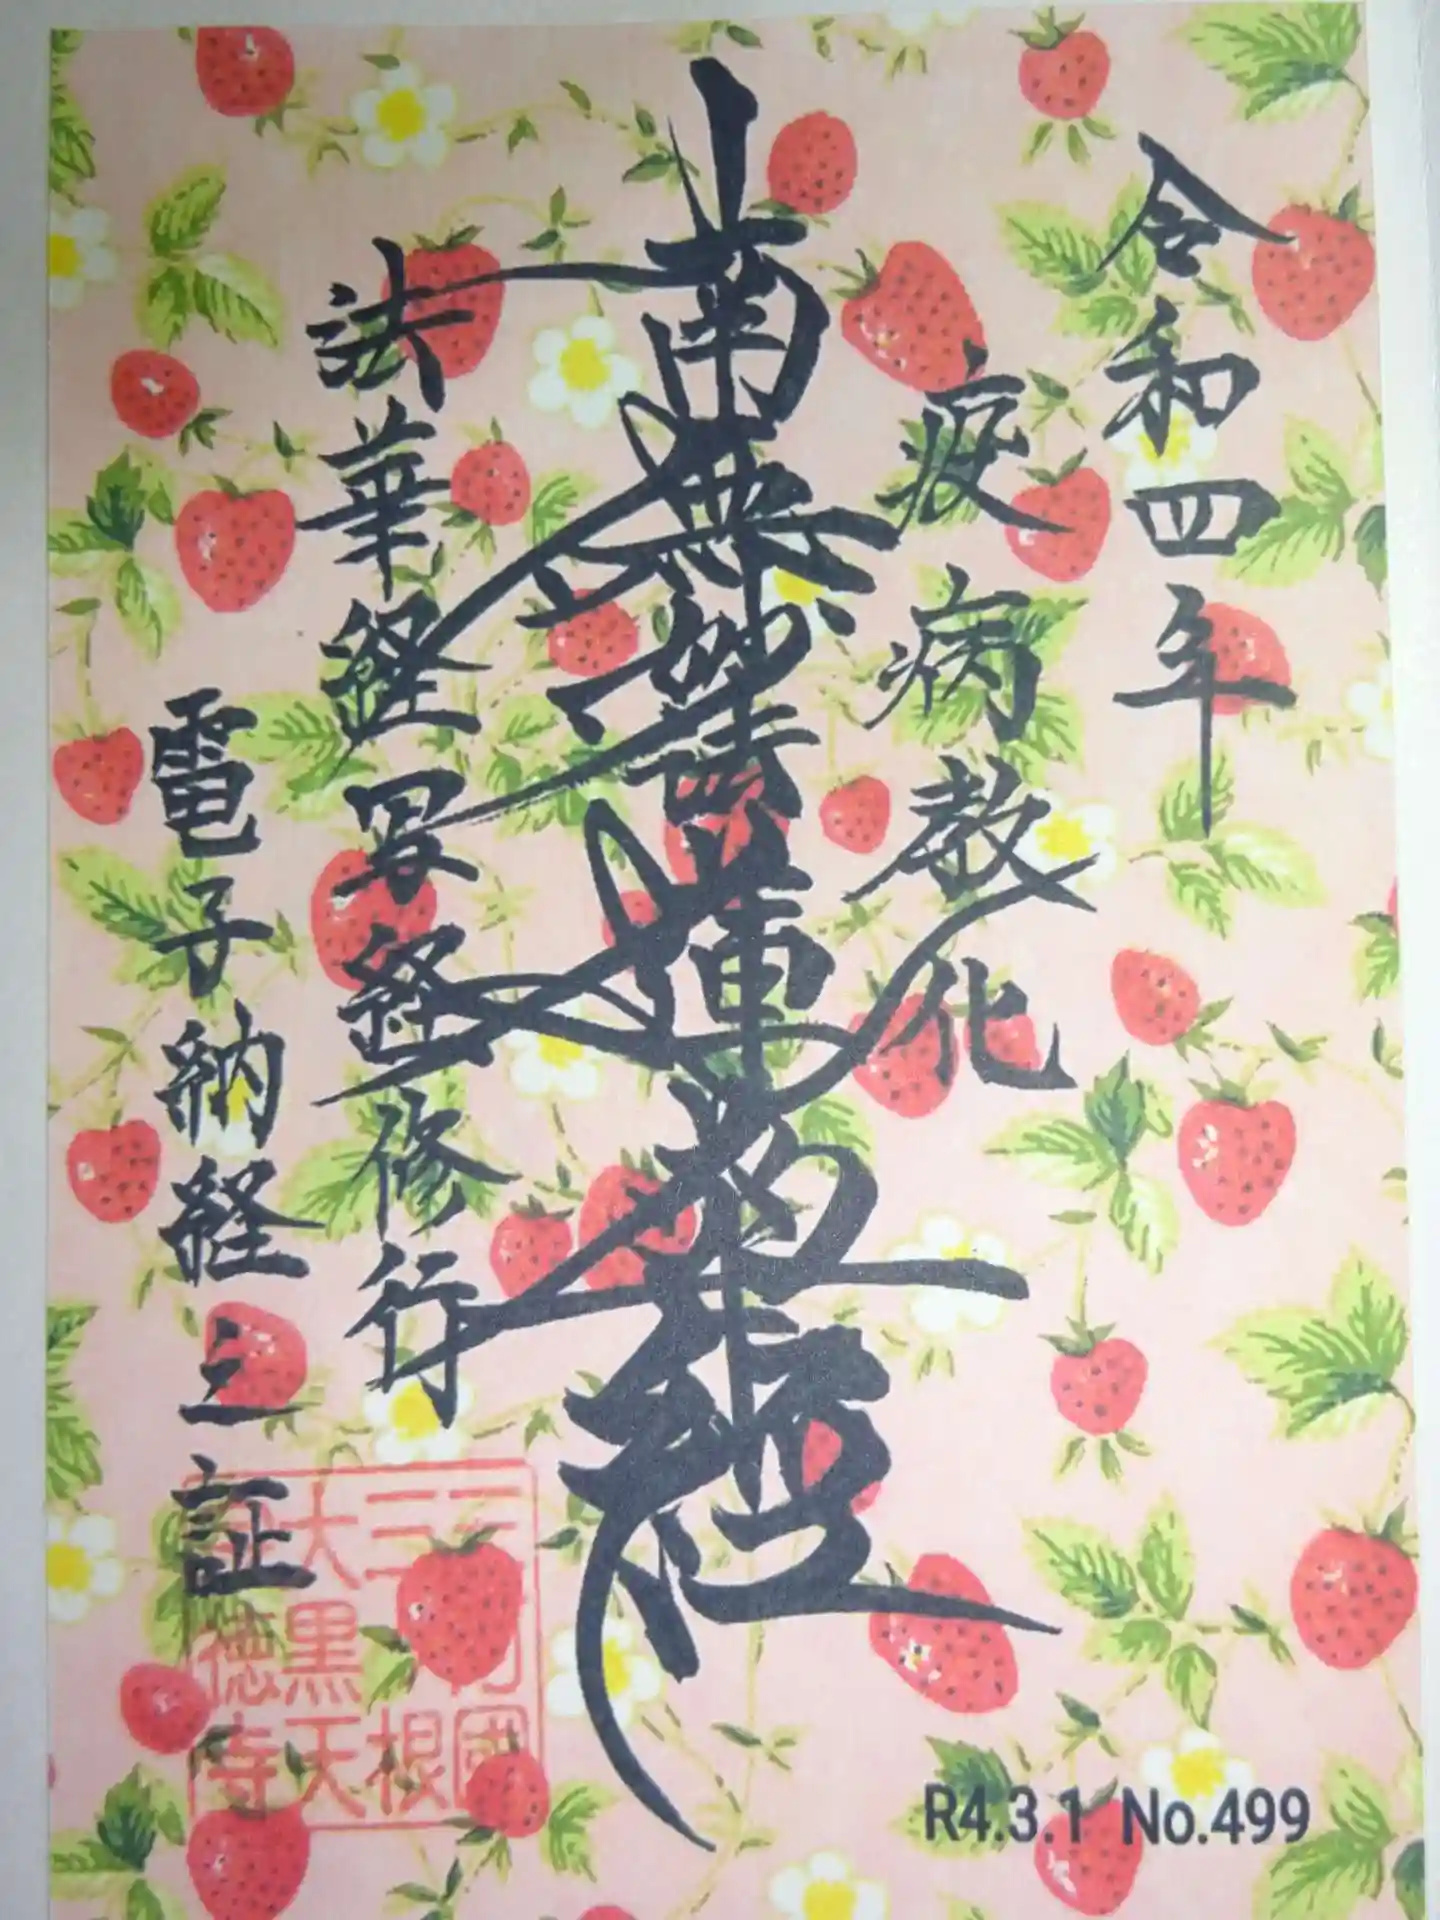 令和四年
疫病教化
南無妙法蓮華経
法華経写経修行
電子納経之証
三
三根
大黒天
徳寺
R4.3.1 No.499